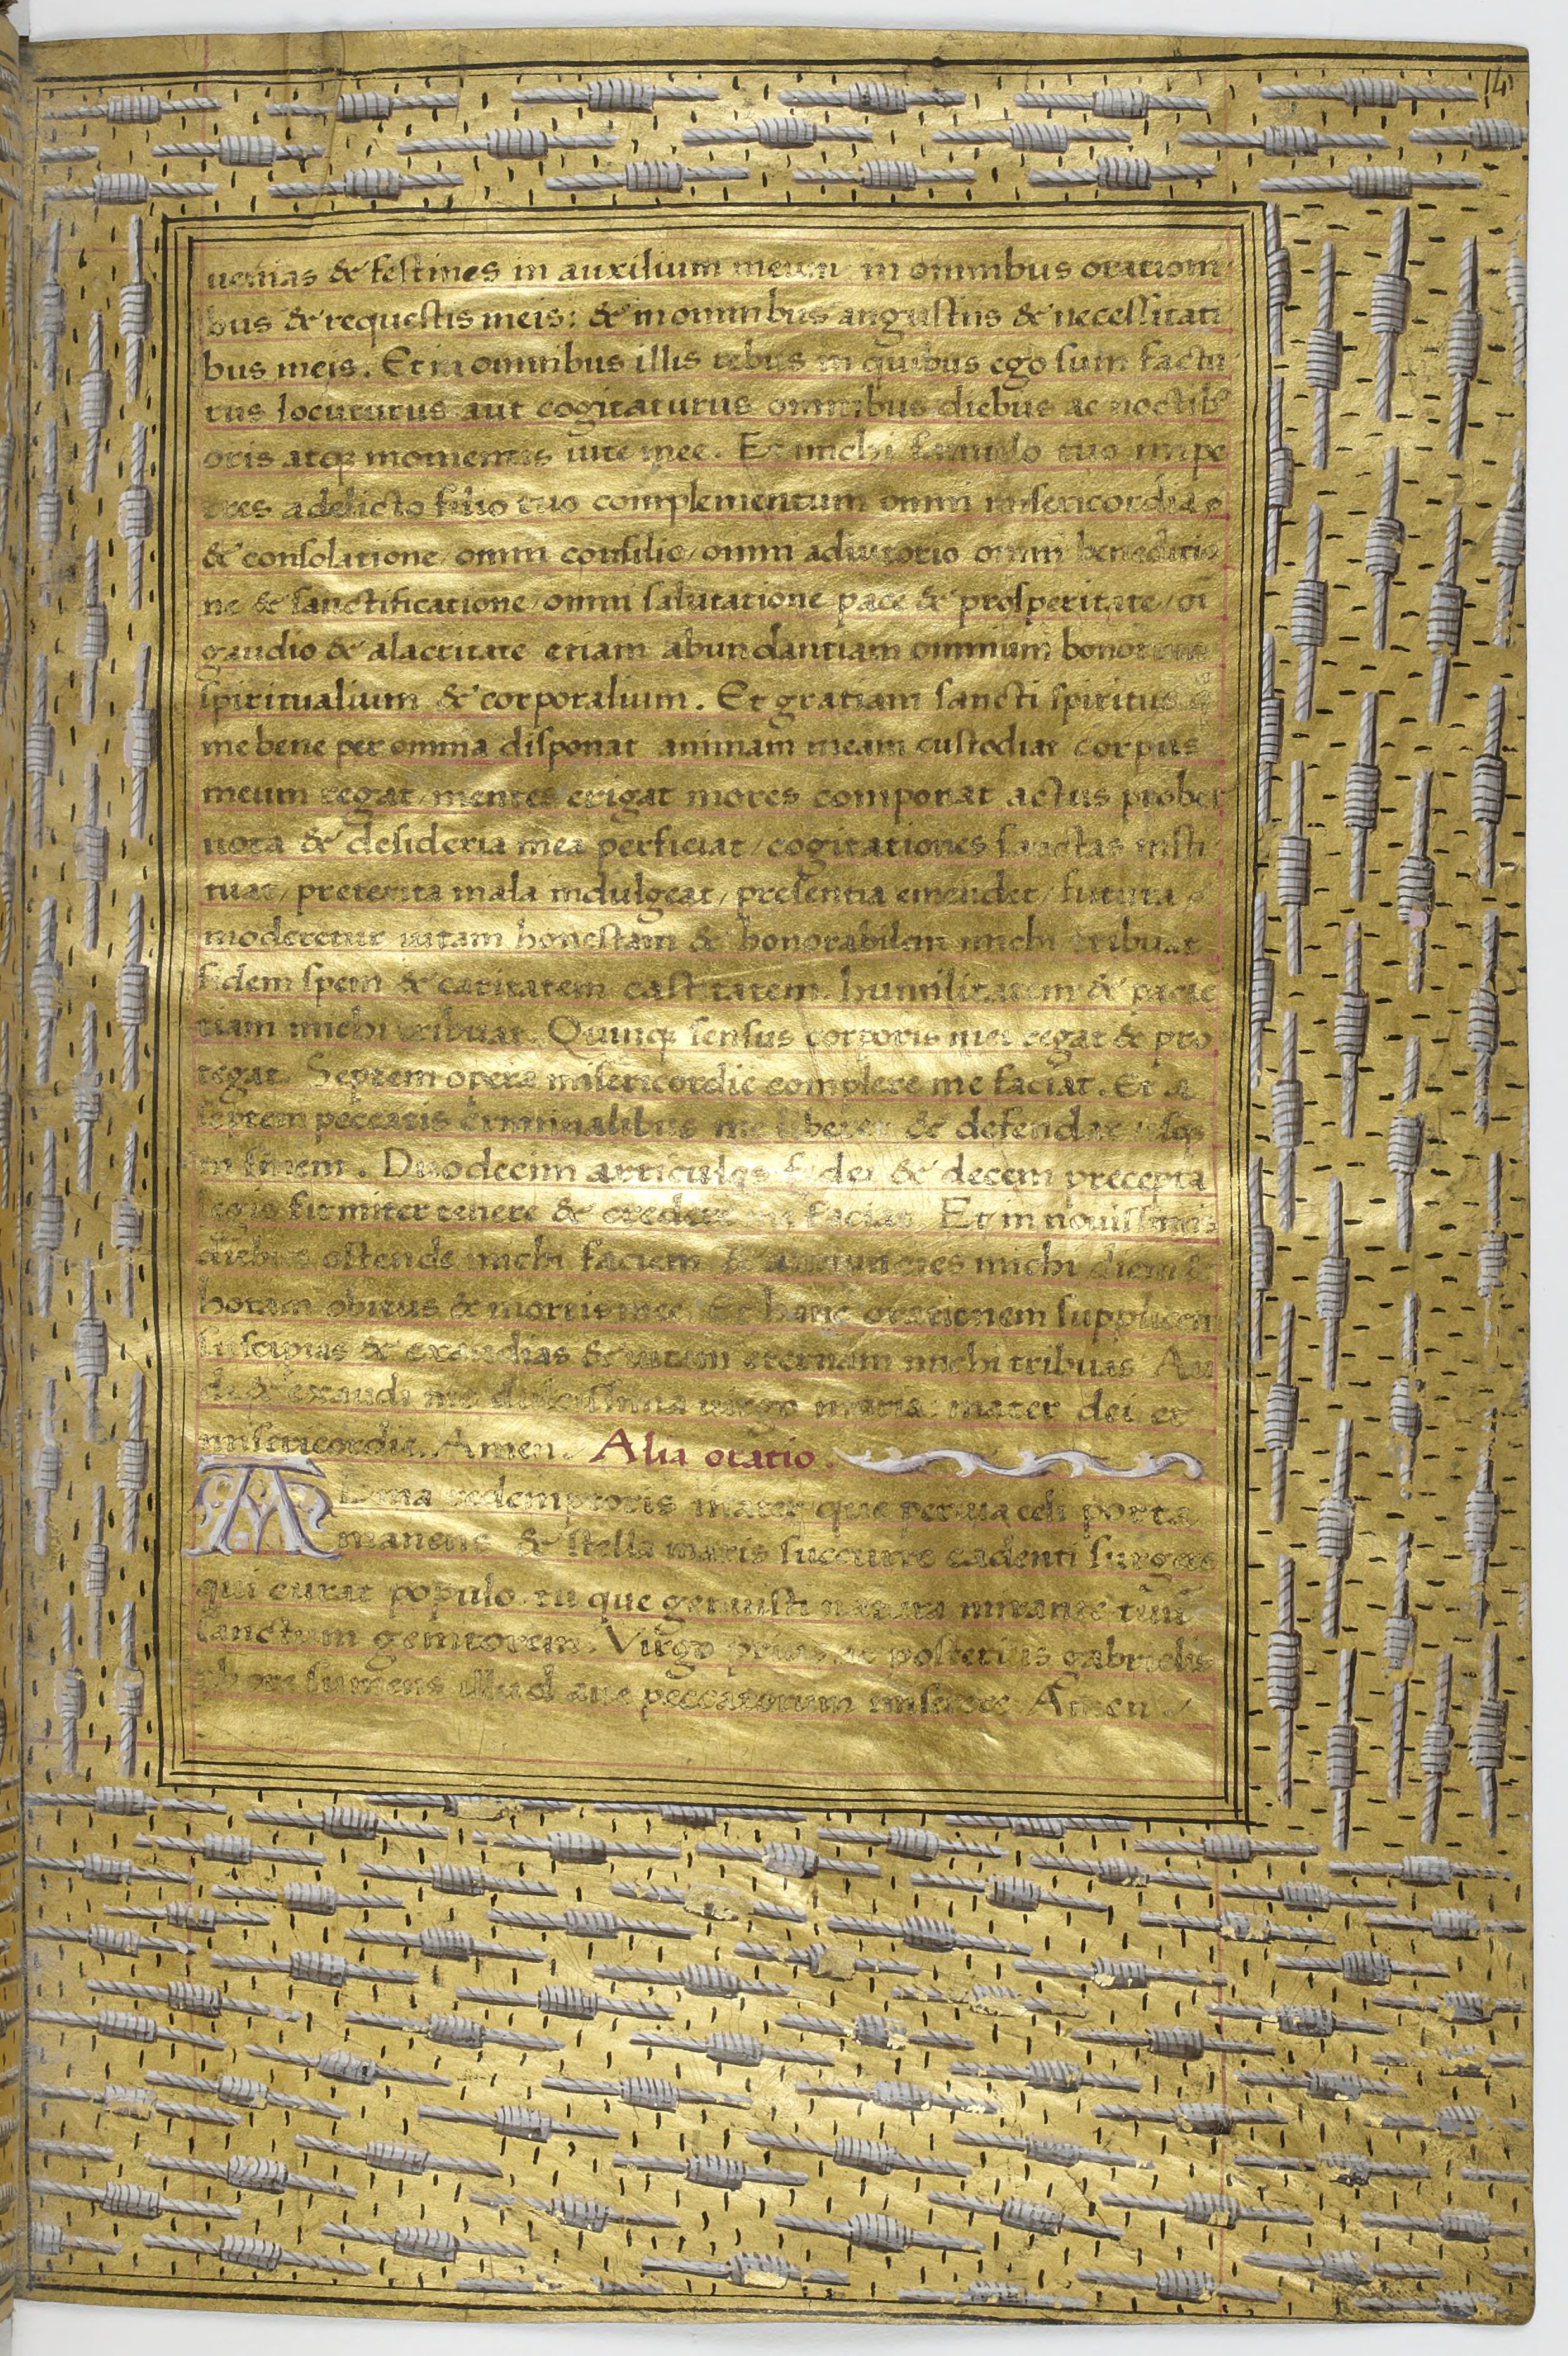 14
uenias & festines in auxilium meum in omnibus orationi
bus & requestis meis: & in omnibus angustiis & necessitati
bus meis. Et in omnibus illis rebus in quibus ego sum factu
rus locuturus aut cogitaturus omnibus diebus ac noctib9
oris atqꝫ momentis uite mee. Et michi famulo tuo impe
tres a delicto filio tuo complementum omni misericordia
& consolatione/ omni consilio/ omni adiutorio omni beneditio
ne & sanctificatione/ omni salutatione pace & prosperitate/ oi
gaudio & alacritate etiam abundantiam omnium bonorum
spiritualium & corporalium. Et gratiam sancti spiritus
me bene per omnia disponat animam meam custodiat corpus
meum regat/ mentes erigat mores componat actus probet
uota & desideria mea perficiat/ cogitationes sanctas insti
tuat/ preterita mala indulgeat/ presentia emendet/ futura
moderetur uitam honestam & honorabilem michi tribuat
fidem spem & caritatem castitatem. humilitatem & pacie
tiam michi tribuat. Quinqꝫ sensus corporis mei regat & pro
tegat. Septem opera misericordie complere me faciat. Et a
septem peccatis criminalibus me liberet & defendat usqꝫ
in finem. Duodecim articulos fidei & decem precepta
legis firmiter tenere & credere me facias. Et in nouissimis
diebus ostende michi faciem & annuncies michi diem &
horam obitus & mortis mee. Et hanc orationem supplicem
suscipias & exaudias & uitam eternam michi tribuas Au
di & exaudi me dulcissima uirgo maria mater dei et
misericordie. Amen. Alia oratio.
ALma redemptoris mater que peruia celi porta
manens & stella maris succurre cadenti surgere
qui curat populo tu que genuisti natura mirante tuū
sanctum genitorem. Virgo prius ac posterius gabrielis
ab ore sumens illud aue peccatorum miserere Amen /